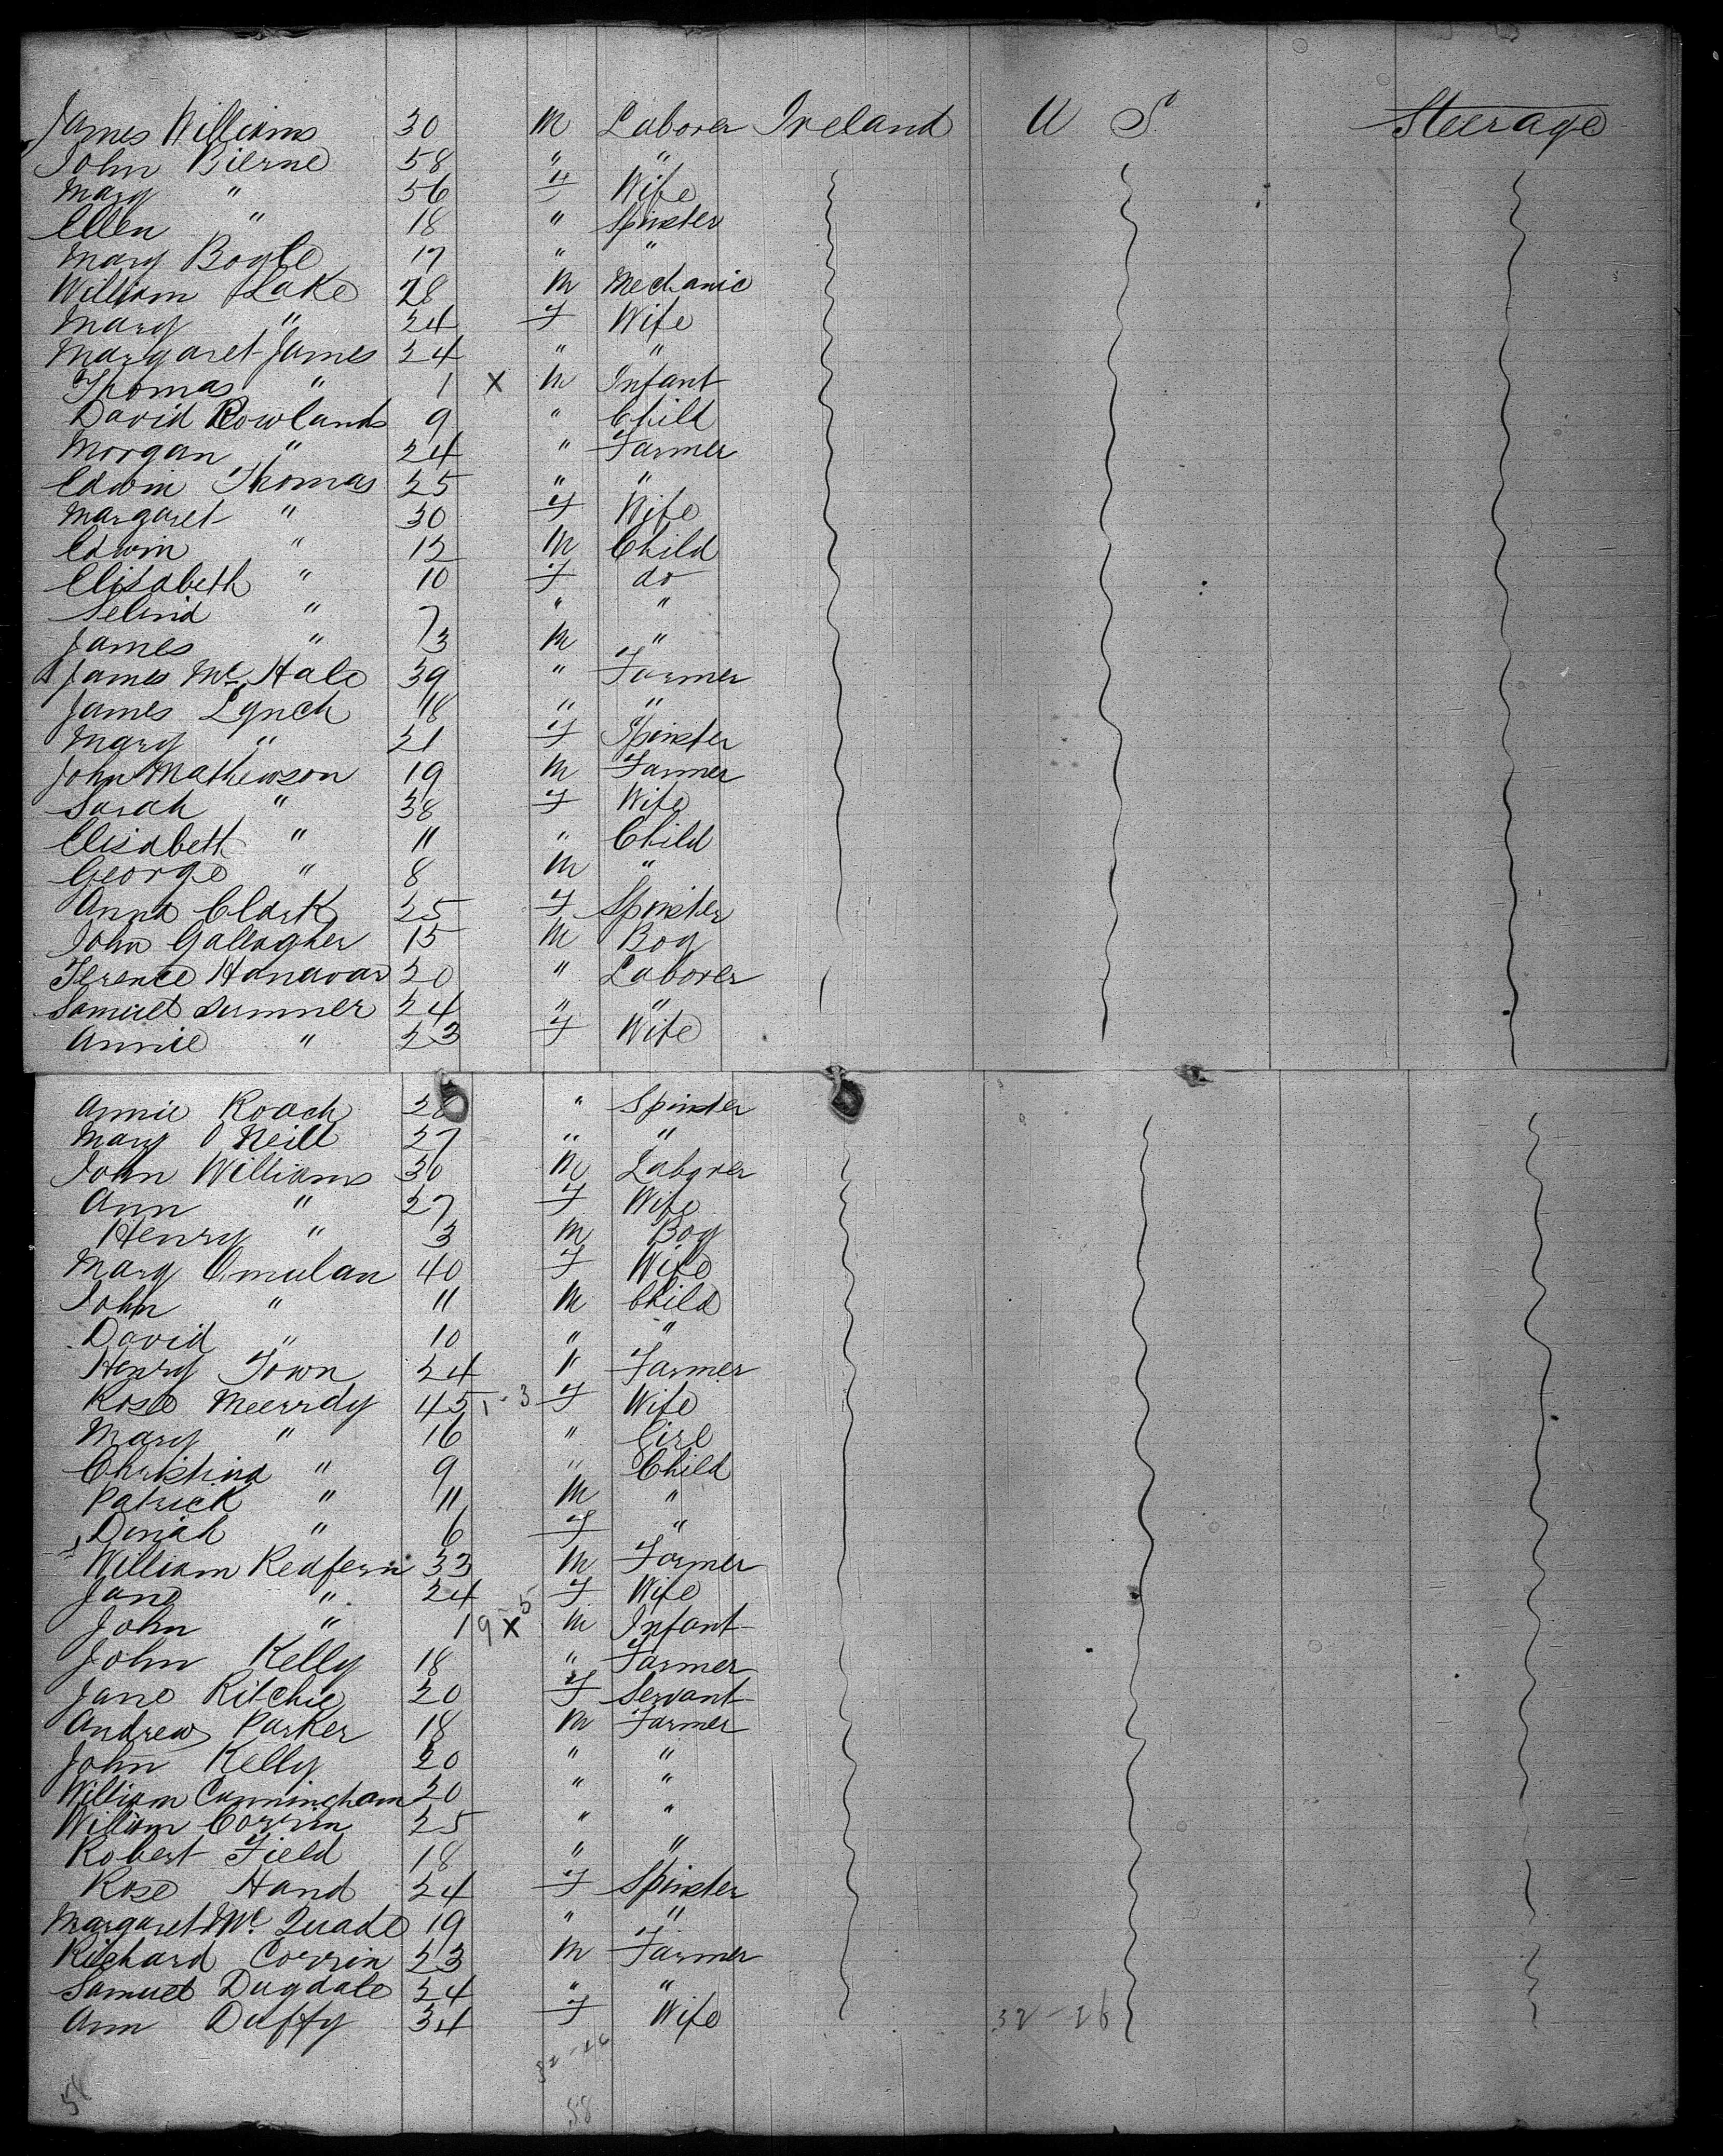 James Williams 30 M Laborer Ireland U S Steerage
John Bierne 58 " "
Mary " 56 F Wife
Ellen " 18 " Spinster
Mary Boyle 17 " "
William Lake 28 M Mechanic
Mary " 24 F Wife
Margaret James 24 " "
Thomas " 1 X M Infant
David Rowlands 9 " Child
Morgan " 24 " Farmer
Edwin Thomas 25 " "
Margaret " 30 F Wife
Edwin " 12 M Child
Elisabeth " 10 F do
Selina " 7 " "
James " 3 M "
James Mc Hale 39 " Farmer
James Lynch 18 " "
Mary " 21 F Spinster
John Mathewson 19 M Farmer
Sarah " 38 F Wife
Elisabeth " 11 " Child
George " 8 M "
Anna Clark 25 F Spinster
John Gallagher 15 M Boy
Terence Hanavar 20 " Laborer
Samuel Sumner 24 " "
Annie " 23 F Wife
Annie Roach 28 " Spinster
Mary O Neill 27 " "
John Williams 30 M Laborer
Ann " 27 F Wife
Henry " 3 M Boy
Mary 40 F Wife
John " 11 M Child
David " 10 " "
Henry Town 24 " Farmer
Rose Meerrdy 45 F Wife
Mary " 16 " Girl
Christina " 9 " Child
Patrick " 11 M "
Dinah " 6 F "
William Redfern 33 M Farmer
Jane " 24 F Wife
John " 1 9 X M Infant
John Kelly 18 " Farmer
Jane Ritchie 20 F Servant
Andrew Parker 18 M Farmer
John Kelly 20 " "
William Cunningham 20 " "
William Corrin 25 " "
Robert Field 18 " "
Rose Hand 24 F Spinster
Margaret Mc Quade 19 " "
Richard Corrin 23 M Farmer
Samuel Dugdale 24 " "
Ann Duffy 34 F Wife 32-26
32-26
58 58